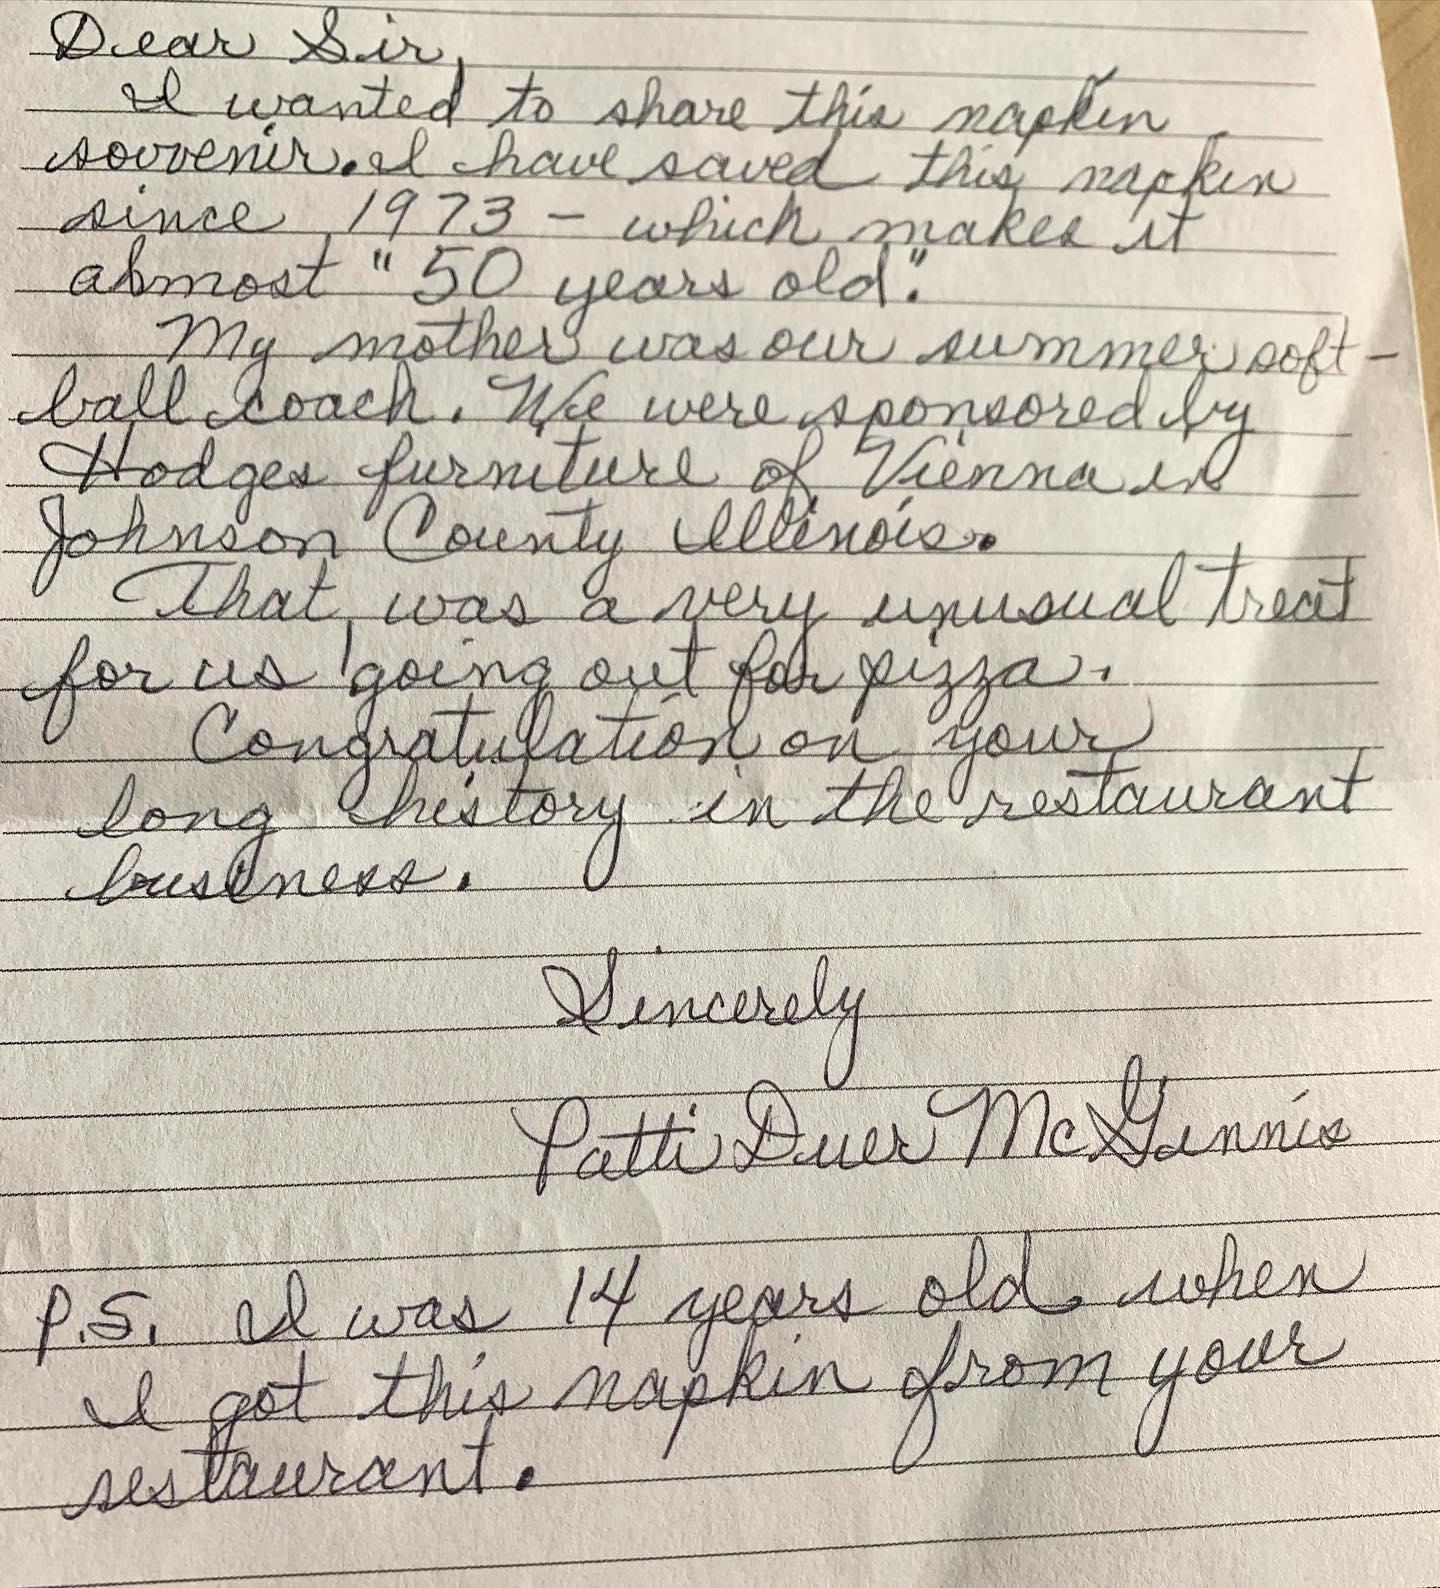 Dear Sir,
I wanted to share this napkin
souvenir. I have saved this napkin
since 1973 - which makes it
almost "50 years old".
My mother was our summer soft-
ball coach. We were sponsored by
Hodges furniture of Vienna in
Johnson County Illinois.
That was a very unusual treat
for us going out for pizza.
Congratulation on your
long history in the restaurant
business.
Sincerely
Patti Duer McGinnis
P.S. I was 14 years old when
I got this napkin from your
restaurant.